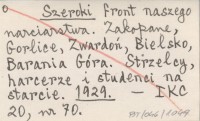 Szeroki front naszego
narciarstwa. Zakopane,
Gorlice, Zwardoń, Bielsko,
Barania Góra. Strzelcy,
harcerze i studenci na
starcie. 1929. — IKC
20, nr 70.